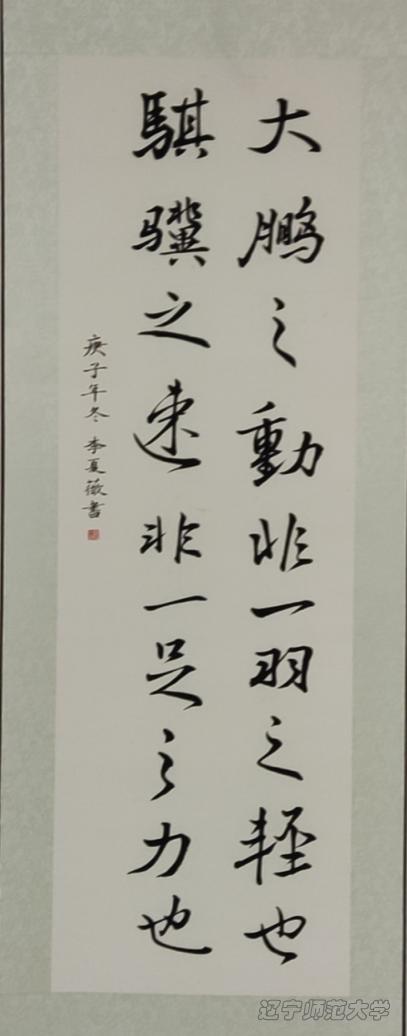 大鹏之動非一羽之輕也
騏驥之速非一足之力也
庚子年冬 李夏薇書
辽宁师范大学